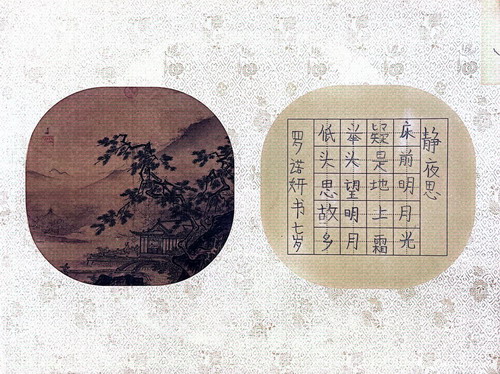 静夜思
床前明月光
疑是地上霜
举头望明月
低头思故乡
罗诺妍书七岁